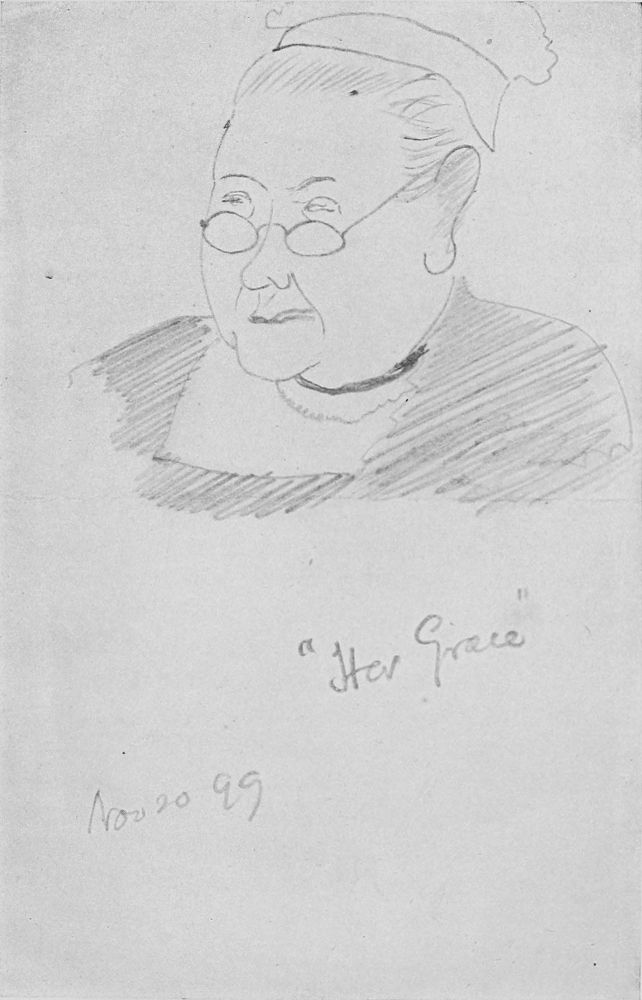 "Her Grace"
Nov 20 99